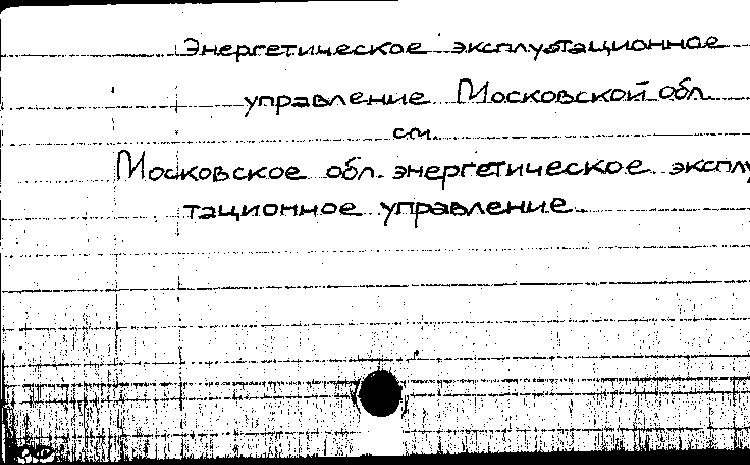 Энергетическое эксплуатационное
управление Московской обл.
см.
Московское обл. энергетическое эксплу
тационное управление